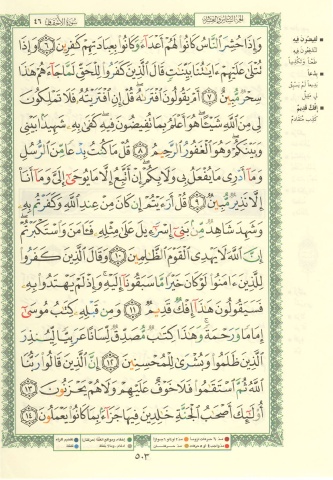 الجزء السادس والعشرون
سورة الأحقاف ٤٦
وَإِذَا حُشِرَ ٱلنَّاسُ كَانُوا۟ لَهُمْ أَعْدَآءً وَكَانُوا۟ بِعِبَادَتِهِمْ كَٰفِرِينَ ۝٦ وَإِذَا
تُتْلَىٰ عَلَيْهِمْ ءَايَٰتُنَا بَيِّنَٰتٍ قَالَ ٱلَّذِينَ كَفَرُوا۟ لِلْحَقِّ لَمَّا جَآءَهُمْ هَٰذَا
سِحْرٌ مُّبِينٌ ۝٧ أَمْ يَقُولُونَ ٱفْتَرَىٰهُ قُلْ إِنِ ٱفْتَرَيْتُهُۥ فَلَا تَمْلِكُونَ
لِى مِنَ ٱللَّهِ شَيْـًٔا هُوَ أَعْلَمُ بِمَا تُفِيضُونَ فِيهِ كَفَىٰ بِهِۦ شَهِيدًۢا بَيْنِى
وَبَيْنَكُمْ وَهُوَ ٱلْغَفُورُ ٱلرَّحِيمُ ۝٨ قُلْ مَا كُنتُ بِدْعًا مِّنَ ٱلرُّسُلِ
وَمَآ أَدْرِى مَا يُفْعَلُ بِى وَلَا بِكُمْ إِنْ أَتَّبِعُ إِلَّا مَا يُوحَىٰٓ إِلَىَّ وَمَآ أَنَا۠
إِلَّا نَذِيرٌ مُّبِينٌ ۝٩ قُلْ أَرَءَيْتُمْ إِن كَانَ مِنْ عِندِ ٱللَّهِ وَكَفَرْتُم بِهِۦ
وَشَهِدَ شَاهِدٌ مِّنۢ بَنِىٓ إِسْرَٰٓءِيلَ عَلَىٰ مِثْلِهِۦ فَـَٔامَنَ وَٱسْتَكْبَرْتُمْ
إِنَّ ٱللَّهَ لَا يَهْدِى ٱلْقَوْمَ ٱلظَّٰلِمِينَ ۝١٠ وَقَالَ ٱلَّذِينَ كَفَرُوا۟
لِلَّذِينَ ءَامَنُوا۟ لَوْ كَانَ خَيْرًا مَّا سَبَقُونَآ إِلَيْهِ وَإِذْ لَمْ يَهْتَدُوا۟ بِهِۦ
فَسَيَقُولُونَ هَٰذَآ إِفْكٌ قَدِيمٌ ۝١١ وَمِن قَبْلِهِۦ كِتَٰبُ مُوسَىٰٓ
إِمَامًا وَرَحْمَةً وَهَٰذَا كِتَٰبٌ مُّصَدِّقٌ لِّسَانًا عَرَبِيًّا لِّيُنذِرَ
ٱلَّذِينَ ظَلَمُوا۟ وَبُشْرَىٰ لِلْمُحْسِنِينَ ۝١٢ إِنَّ ٱلَّذِينَ قَالُوا۟ رَبُّنَا
ٱللَّهُ ثُمَّ ٱسْتَقَٰمُوا۟ فَلَا خَوْفٌ عَلَيْهِمْ وَلَا هُمْ يَحْزَنُونَ ۝١٣
أُو۟لَٰٓئِكَ أَصْحَٰبُ ٱلْجَنَّةِ خَٰلِدِينَ فِيهَا جَزَآءًۢ بِمَا كَانُوا۟ يَعْمَلُونَ ۝١٤
تُفيضون فيه
بدعاً
إفك قديم
كذب متقادم
٥٠٣